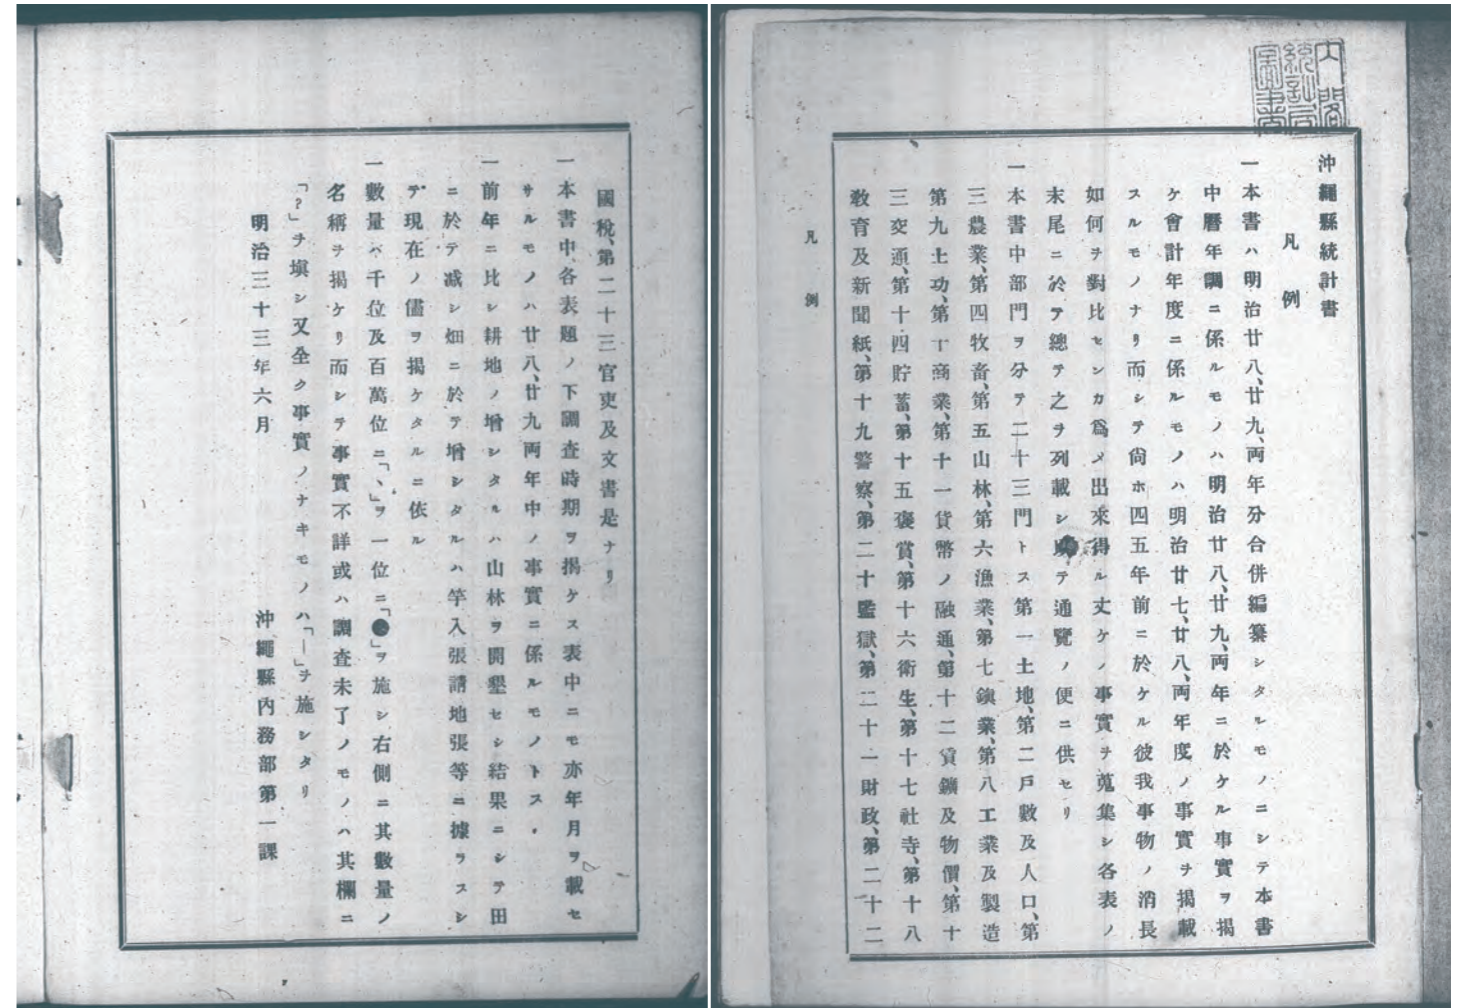 沖繩縣統計書
凡例
一本書ハ明治廿八、廿九、兩年分合併編纂シタルモノニシテ本書
中曆年調ニ係ルモノハ明治廿八、廿九、兩年ニ於ケル事實ヲ揭
ケ會計年度ニ係ルモノハ明治廿七、廿八、兩年度ノ事實ヲ揭載
スルモノナリ而シテ尙ホ四五年前ニ於ケル彼我事物ノ消長
如何ヲ對比センカ爲メ出來得ル丈ケノ事實ヲ蒐集シ各表ノ
末尾ニ於テ總テ之ヲ列載シ以テ通覽ノ便ニ供セリ
一本書中部門ヲ分テ二十三門トス第一土地、第二戶數及人口、第
三農業、第四牧畜、第五山林、第六漁業、第七鑛業、第八工業及製造
第九土功、第十商業、第十一貨幣ノ融通、第十二賃鑛及物價、第十
三交通、第十四貯蓄、第十五褒賞、第十六衛生、第十七社寺、第十八
敎育及新聞紙、第十九警察、第二十監獄、第二十一財政、第二十二
凡例
國稅、第二十三官吏及文書是ナリ
一本書中各表題ノ下調査時期ヲ揭ケス表中ニモ亦年月ヲ載セ
サルモノハ廿八、廿九兩年中ノ事實ニ係ルモノトス
一前年ニ比シ耕地ノ增シタルハ山林ヲ開墾セシ結果ニシテ田
ニ於テ減シ畑ニ於テ增シタルハ竿入張請地張等ニ據ラスシ
テ現在ノ儘ヲ揭ケタルニ依ル
一數量ハ千位及百萬位ニ「、」ヲ一位ニ「●」ヲ施シ右側ニ其數量ノ
名稱ヲ揭ケリ而シテ事實不詳或ハ調査未了ノモノハ其欄ニ
「?」ヲ塡シ又全ク事實ノナキモノハ「―」ヲ施シタリ
明治三十三年六月
沖繩縣內務部第一課